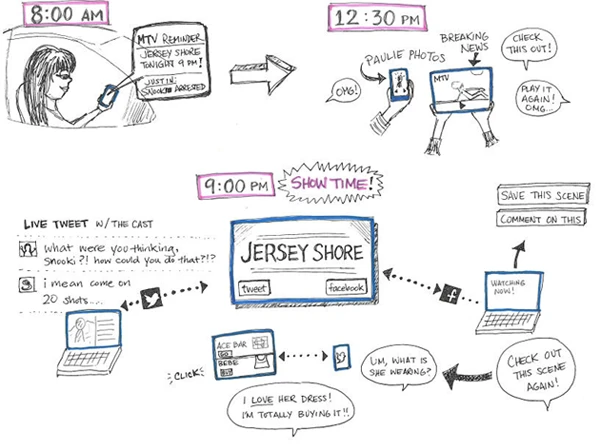 8:00 AM
MTV REMINDER
JERSEY SHORE
TONIGHT 9 PM!
JUST IN:
SNOOKI ARRESTED
12:30 PM
PAULIE PHOTOS
BREAKING
NEWS
MTV
OMG!
CHECK
THIS OUT!
PLAY IT
AGAIN!
OMG...
9:00 PM
SHOW TIME!
LIVE TWEET W/THE CAST
what were you thinking,
Snooki?! how could you do that?!?
i mean come on
20 shots....
JERSEY SHORE
tweet
facebook
f
SAVE THIS SCENE
COMMENT ON THIS
WATCHING
NOW!
CHECK OUT
THIS SCENE
AGAIN!
UM, WHAT IS
SHE WEARING?
ACE BAR
GO
BEBE
BUY
CLICK
I LOVE HER DRESS!
I'M TOTALLY BUYING IT!!